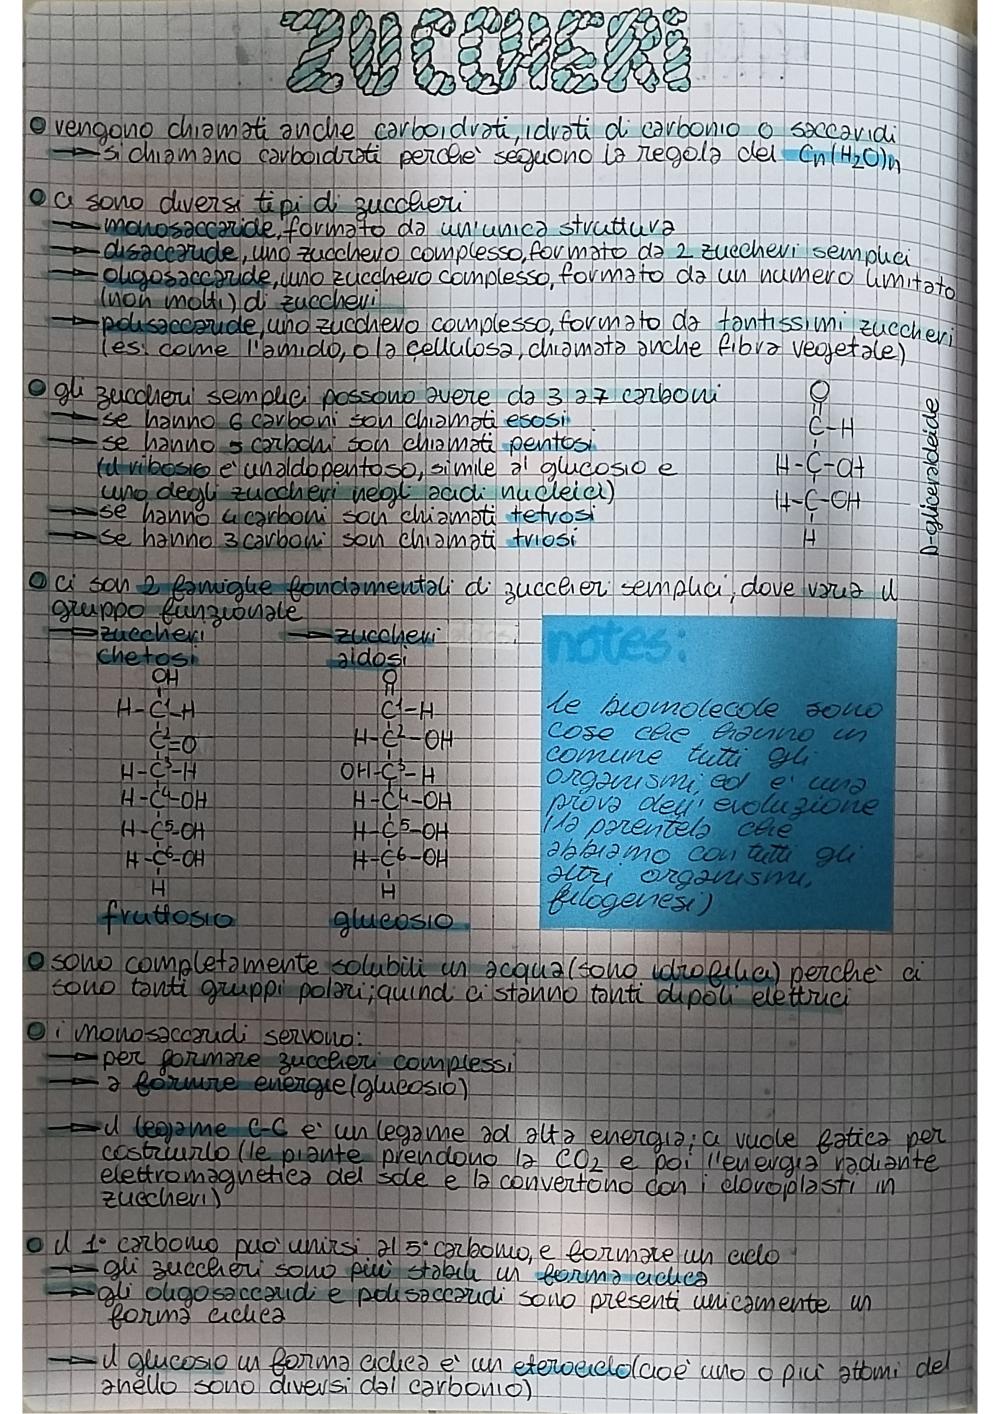 ZUCCHERI
vengono chiamati anche carboidrati, idrati di carbonio o saccaridi
→ si chiamano carboidrati perche' seguono la regola del Cn(H2O)n
ci sono diversi tipi di zuccheri
→ monosaccaride, formato da un'unica struttura
→ disaccaride, uno zucchero complesso, formato da 2 zuccheri semplici
→ oligosaccaride, uno zucchero complesso, formato da un numero limitato
(non molti) di zuccheri
→ polisaccaride, uno zucchero complesso, formato da tantissimi zuccheri
(es: come l'amido, o la cellulosa, chiamata anche fibra vegetale)
gli zuccheri semplici possono avere da 3 a 7 carboni
→ se hanno 6 carboni son chiamati esosi
→ se hanno 5 carboni son chiamati pentosi
(il ribosio e' un aldopentoso, simile al glucosio e
uno degli zuccheri negli acidi nucleici)
→ se hanno 4 carboni son chiamati tetrosi
→ se hanno 3 carboni son chiamati triosi
O
C-H
H-C-OH
H-C-OH
H
D-gliceraldeide
ci son 2 famiglie fondamentali di zuccheri semplici, dove varia il
gruppo funzionale
→ zuccheri
chetosi
OH
H-C1-H
C2=O
H-C3-H
H-C4-OH
H-C5-OH
H-C6-OH
H
fruttosio
→ zuccheri
aldosi
O
C1-H
H-C2-OH
OH-C3-H
H-C4-OH
H-C5-OH
H-C6-OH
H
glucosio
notes:
le biomolecole sono
cose che hanno in
comune tutti gli
organismi, ed e' una
prova dell'evoluzione
(la parentela che
abbiamo con tutti gli
altri organismi,
filogenesi)
sono completamente solubili in acqua (sono idrofilici) perche' ci
sono tanti gruppi polari; quindi ci stanno tanti dipoli elettrici
i monosaccaridi servono:
→ per formare zuccheri complessi
→ a fornire energie (glucosio)
→ il legame C-C e' un legame ad alta energia; ci vuole fatica per
costruirlo (le piante prendono la CO2 e poi l'energia radiante
elettromagnetica del sole e la convertono con i cloroplasti in
zuccheri)
il 1° carbonio puo' unirsi al 5° carbonio, e formare un ciclo
→ gli zuccheri sono più stabili in forma ciclica
→ gli oligosaccaridi e polisaccaridi sono presenti unicamente in
forma ciclica
→ il glucosio in forma ciclica e' un eterociclo (cioe' uno o più atomi del
anello sono diversi dal carbonio)